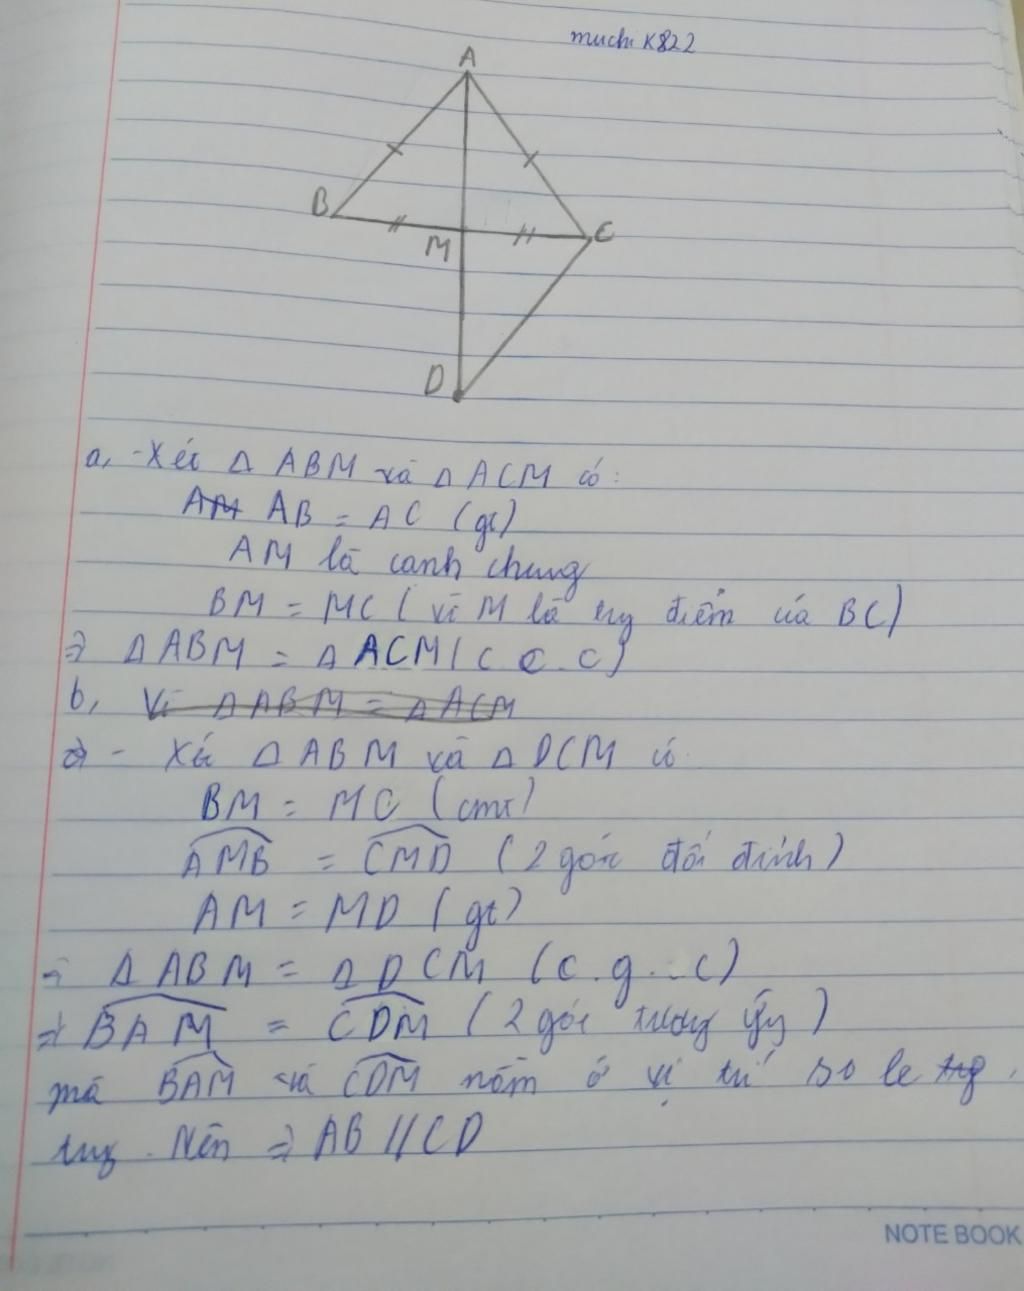 muchi K822
A
B
C
M
D
a, - Xét Δ ABM và Δ ACM có:
AM AB = AC (gt)
AM là cạnh chung
BM = MC ( vì M là trg điểm của BC)
⇒ Δ ABM = Δ ACM ( C C . C )
b, Vì Δ ABM = Δ ACM
- Xét Δ ABM và Δ DCM có
BM = MC (cmt)
AMB = CMD ( 2 góc đối đỉnh )
AM = MD (gt)
⇒ Δ ABM = Δ DCM (c.g.c)
⇒ BAM = CDM ( 2 góc tương ứng )
mà BAM và CDM nằm ở vị trí so le trg
trg . Nên ⇒ AB // CD
NOTE BOOK